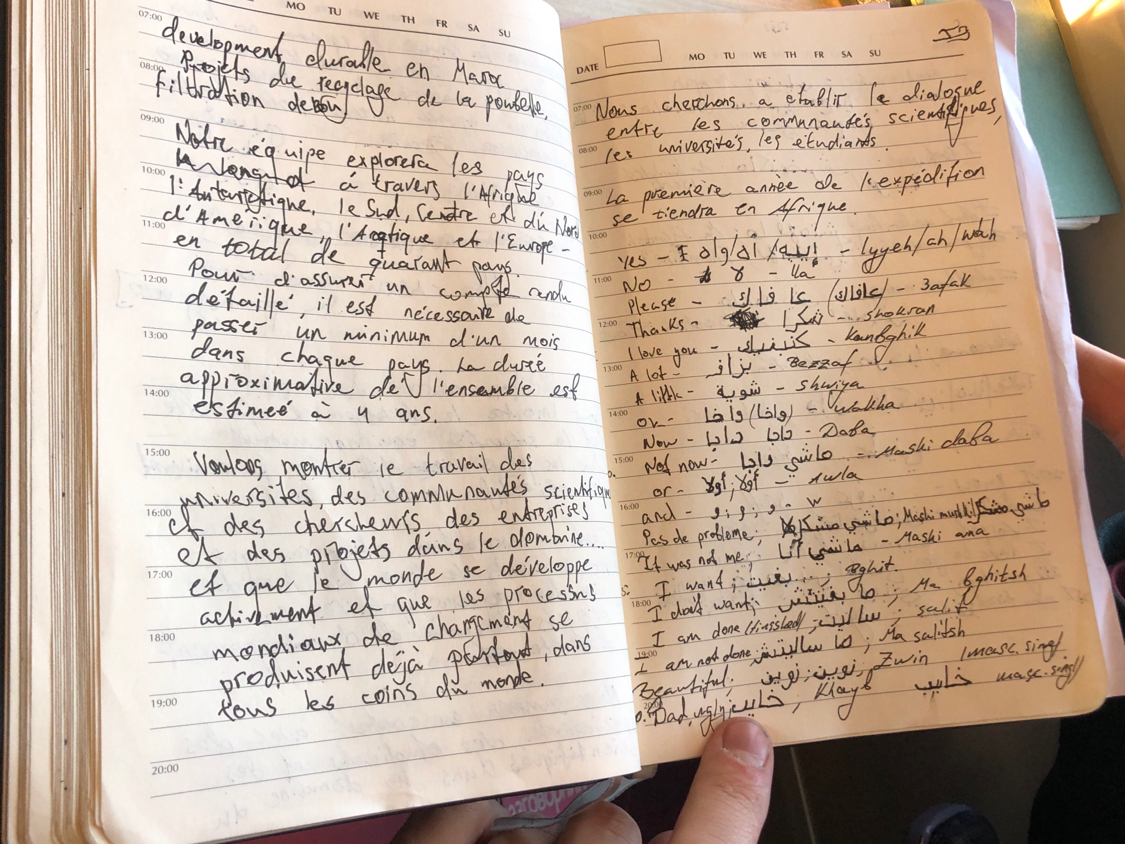 MO TU WE TH FR SA SU
07:00
development durable en Maroc
08:00
Projets du recyclage de la poubelle,
filtration
09:00
Notre équipe explorera les pays
10:00
à travers l'Afrique
l'Antarctique, le Sud, Centre et du Nord
11:00
d'Amérique, l'Arctique et l'Europe -
en total de quarant pays.
12:00
Pour d'assurer un compte rendu
détaillé, il est nécessaire de
13:00
passer un minimum d'un mois
dans chaque pays. La dureé
14:00
approximative de l'ensemble est
estimeé à 4 ans.
15:00
Voulons montrer le travail des
universités, des communautés scientifiqu
16:00
et des chercheurs des entreprises
et des projets dans le dombine....
17:00
et que le monde se developpe
activement et que les processus
18:00
mondiaux de changement se
produisent déjà partout, dans
19:00
tous les coins du monde.
20:00
DATE MO TU WE TH FR SA SU
07:00
Nous cherchons a etablir le dialogue
entre les communautés scientifiques,
08:00
les universités, les étudiants.
09:00
La première année de l'expédition
se tiendra en Afrique.
10:00
Yes - اييه/اه/واه - Iyyeh/ah/wah
11:00
No - لا - la
Please - عافاك (عافاك) - 3afak
12:00
Thanks - شكرا - shokran
I love you - كنبغيك - Kanbghik
13:00
A lot - بزاف - Bezzaf
A little - شوية - Shwiya
14:00
or - واخا (واخا) - Wakha
Now - دابا دابا - Daba
15:00
Not now - ماشي دابا - Mashi daba
or - أولا, أولا - Awla
16:00
and - و, و, و - w
Pas de probleme, ماشي مشكل, Mashi ماشي مشكل
17:00
It was not me, ماشي أنا - Mashi ana
I want, بغيت, Bghit.
18:00
I don't want, ما بغيتش, Ma bghitsh
I am done (finished), ساليت, salit
19:00
I am not done, ما ساليتش, Ma salitsh
Beautiful, زوين, زوين, Zwin (masc. sing)
20:00
Bad, ugly, خايب, Khayb خايب masc. sing)